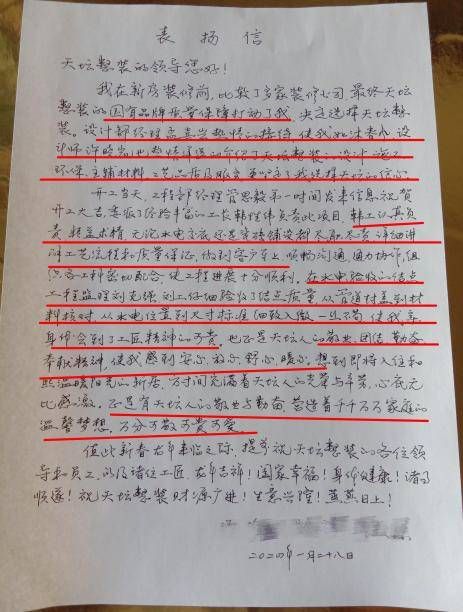 表扬信
天坛整装的领导您好！
我在新房装修前，比较了多家装修公司 最终天坛
整装的国有品牌质量保障打动了我 决定选择天坛整
装。设计部经理孟 热情的接待 使我如沐春风 设
计师许晓 热情详 的介绍了天坛整装的设计 施工
环保 主辅材料 工艺品质及服务 更坚定了我选择天坛的信心
开工当天，工程部经理管思毅第一时间发来信息祝贺
开工大吉 委派了经验丰富的工长韩 伟负责此项目 韩工认真负
责 技术精 无论水电交底 还是瓷砖铺设都 尽职尽责 详细讲
解工艺流程和质量保证，做到客户至上，顺畅沟通，通力协作，组
织各工种密切配合，使工程进展十分顺利。在水电验收的结点
工程监理刘克强 到工地细验收了结点质量 从管道材盖到材
料核对 从水电位置到尺寸标准 细致入微 一丝不苟 使我亲
身体会到了工匠精神的可贵。也正是天坛人的敬业 团结 勤奋
奉献精神，使我感到安心 放心 舒心，暖心，想到即将入住和
煦温暖阳光的新居，房间充满着天坛人的光荣与辛劳，心底无
比感激，还是有天坛人的敬业与勤奋 营造着千千万万家庭的
温馨梦想，万分可敬可贵可爱。
值此新春龙年来临之际，提前祝天坛整装的各位领
导和员工，以及诸位工匠，龙年吉祥！阖家幸福！身体健康！诸事
顺遂！祝天坛整装财源广进！生意兴隆！蒸蒸日上！
二〇二四年一月二十八日